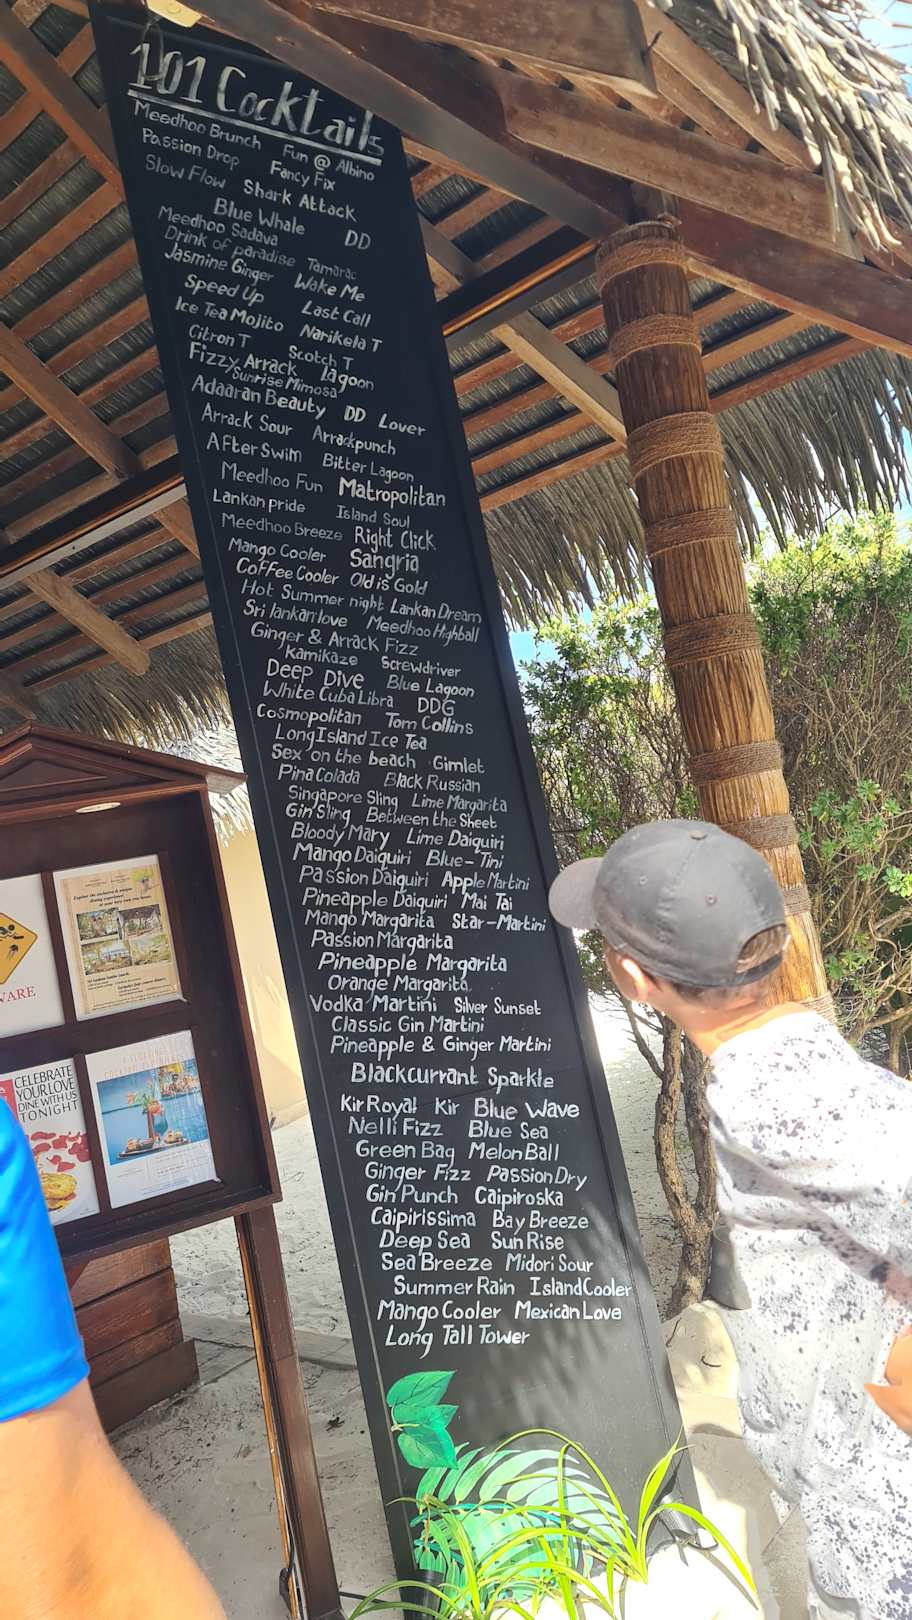 101 Cocktails
Meedhoo Brunch Fun @ Albino
Passion Drop Fancy Fix
Slow Flow Shark Attack
Blue Whale DD
Meedhoo Sadava
Drink of paradise Tamarac
Jasmine Ginger Wake Me
Speed Up Last Call
Ice Tea Mojito Narikela T
Citron T Scotch T
Fizzy Arrack lagoon
Sunrise Mimosa
Adaaran Beauty DD Lover
Arrack Sour Arrackpunch
After Swim Bitter Lagoon
Meedhoo Fun Matropolitan
Lankan pride Island Soul
Meedhoo Breeze Right Click
Mango Cooler Sangria
Coffee Cooler Old is Gold
Hot Summer night Lankan Dream
Sri lankan love Meedhoo Highball
Ginger & Arrack Fizz
Kamikaze Screwdriver
Deep Dive Blue Lagoon
White Cuba Libra DDG
Cosmopolitan Tom Collins
Long Island Ice Tea
Sex on the beach Gimlet
Pina Colada Black Russian
Singapore Sling Lime Margarita
Gin Sling Between the Sheet
Bloody Mary Lime Daiquiri
Mango Daiquiri Blue-Tini
Passion Daiguiri Apple Martini
Pineapple Daiquiri Mai Tai
Mango Margarita Star-Martini
Passion Margarita
Pineapple Margarita
Orange Margarita
Vodka Martini Silver Sunset
Classic Gin Martini
Pineapple & Ginger Martini
Blackcurrant Sparkle
Kir Royal Kir Blue Wave
Nelli Fizz Blue Sea
Green Bag Melon Ball
Ginger Fizz Passion Dry
Gin Punch Caipiroska
Caipirissima Bay Breeze
Deep Sea Sun Rise
Sea Breeze Midori Sour
Summer Rain Island Cooler
Mango Cooler Mexican Love
Long Tall Tower
CELEBRATE
YOUR LOVE
DINE WITH US
TONIGHT